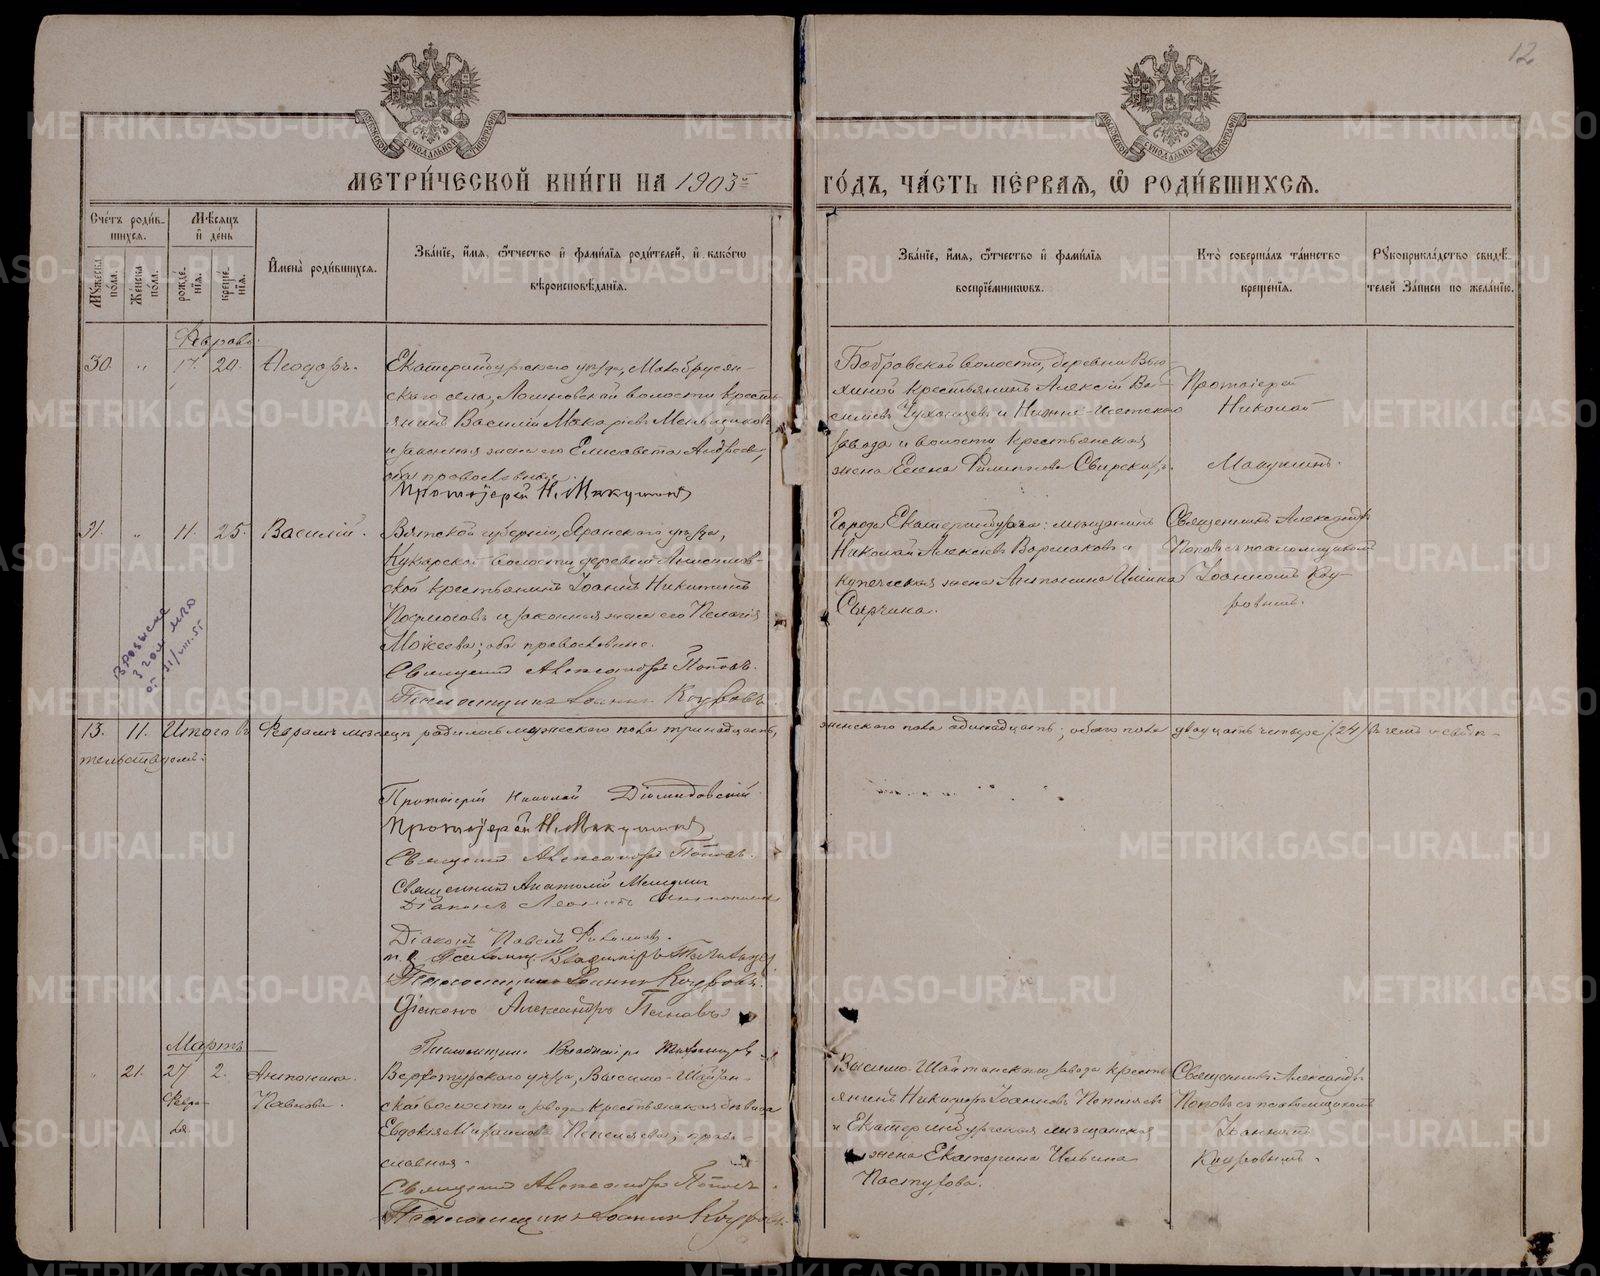 12
МЕТРИ́ЧЕСКОЙ КНИ́ГИ НА 1903й
ГО́ДЪ, ЧА́СТЬ ПЕ́РВАѦ, Ѿ РОДИ́ВШИХСѦ.
Сче́тъ роди́в-
шихсѧ.
Мѣ́сѧцъ
и҆ де́нь
Мꙋжеска по́ла.
Же́нска по́ла.
рожде́нїѧ.
креще́нїѧ.
И҆мена̀ роди́вшихсѧ.
Зва́нїе, и҆́мѧ, ѻ҆́тчество и҆ фами́лїѧ роди́телей, и҆ како́гѡ
вѣроисповѣ́данїѧ.
Зва́нїе, и҆́мѧ, ѻ҆́тчество и҆ фами́лїѧ
воспрїе́мникѡвъ.
Кто̀ соверша́лъ та́инство
креще́нїѧ.
Рꙋкоприкла́дство свидѣ́-
телей за́писи по жела́нїю.
Февраль.
30. " 17. 20. Ѳеодоръ.
Екатеринбургскаго уѣзда, Малобрусян-
скаго села, Логиновской волости кресть-
янинъ Василій Макаріевъ Меньщиковъ
и законная жена его Елисавета Андреева,
оба православные.
Протоіерей Н. Макушинъ
Бобровской волости, деревни Вью-
хиной крестьянинъ Алексій Ва-
силіевъ Чухонцевъ и Нижне-Исетскаго
завода и волости крестьянская
жена Елена Филиппова Свирская.
Протоіерей
Николай
Макушинъ.
31. " 11. 25. Василій.
Вятской губерніи, Яранскаго уѣзда,
Кукарской волости деревни Анисимов-
ской крестьянинъ Іоаннъ Никитинъ
и законная жена его Пелагія
Моисеева; оба православные.
Священникъ Александръ Поповъ.
Псаломщикъ Іоаннъ Коуровъ.
Города Екатеринбурга: мѣщанинъ
Николай Алексіевъ Вармаковъ и
купеческая жена Антонина Ильина
Сырчина.
Священникъ Александръ
Поповъ съ псаломщикомъ
Іоанномъ Коу-
ровымъ.
31/VIII-55
13. 11. Итого въ Февралѣ мѣсяцѣ родилось мужескаго пола тринадцать,
женскаго пола одинадцать, обоего пола двадцать четыре (24) Въ чемъ и свидѣ-
тельствуемъ:
Протоіерей Николай Діомидовскій.
Протоіерей Н. Макушинъ
Священникъ Александръ Поповъ.
Священникъ Анатолій
Діаконъ Леонидъ
Діаконъ Павелъ
Псаломщ. Владиміръ
Псаломщикъ Іоаннъ Коуровъ.
Діаконъ Александръ
Псаломщикъ Владиміръ
Мартъ
" 21. 27 2. Антонина
Февра- Павлова.
ля.
Верхотурскаго уѣзда, Висимо-Шайтан-
ской волости и завода крестьянская дѣвица
Евдокія Михаилова Пепеляева, право-
славная.
Священникъ Александръ Поповъ.
Псаломщикъ Іоаннъ Коуровъ.
Висимо-Шайтанскаго завода кресть-
янинъ Никифоръ Іоанновъ Пепеляевъ
и Екатеринбургская мѣщанская
жена Екатерина Ильина
Пастухова.
Священникъ Александръ
Поповъ съ псаломщикомъ
Іоанномъ
Коуровымъ.
METRIKI.GASO-URAL.RU